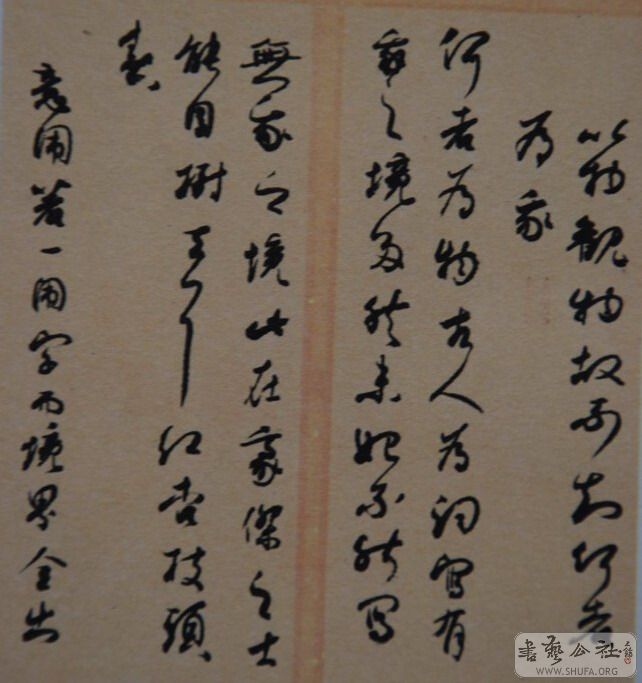 以物觀物故不知何者
為我
何者為物古人為詞寫有
我之境多然未始不能寫
無我之境此在豪傑之士
能自樹立耳 紅杏枝頭
春
意鬧著一鬧字而境界全出
書藝公社
WWW.SHUFA.ORG